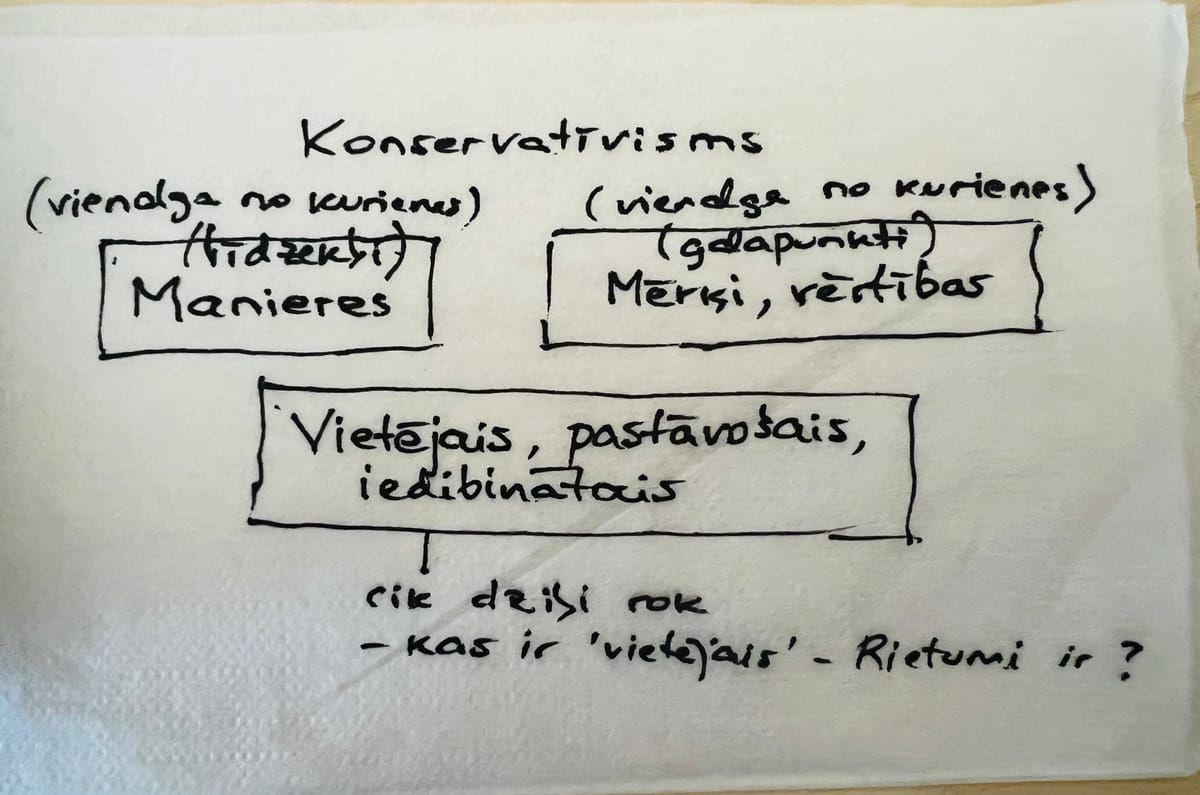 Konservatīvisms
(vienalga no kurienes) (vienalga no kurienes)
(līdzekļi) (galapunkti)
Manieres Mērķi, vērtības
Vietējais, pastāvošais,
iedibinātais
cik dziļi rok
- kas ir 'vietējais' - Rietumi ir ?